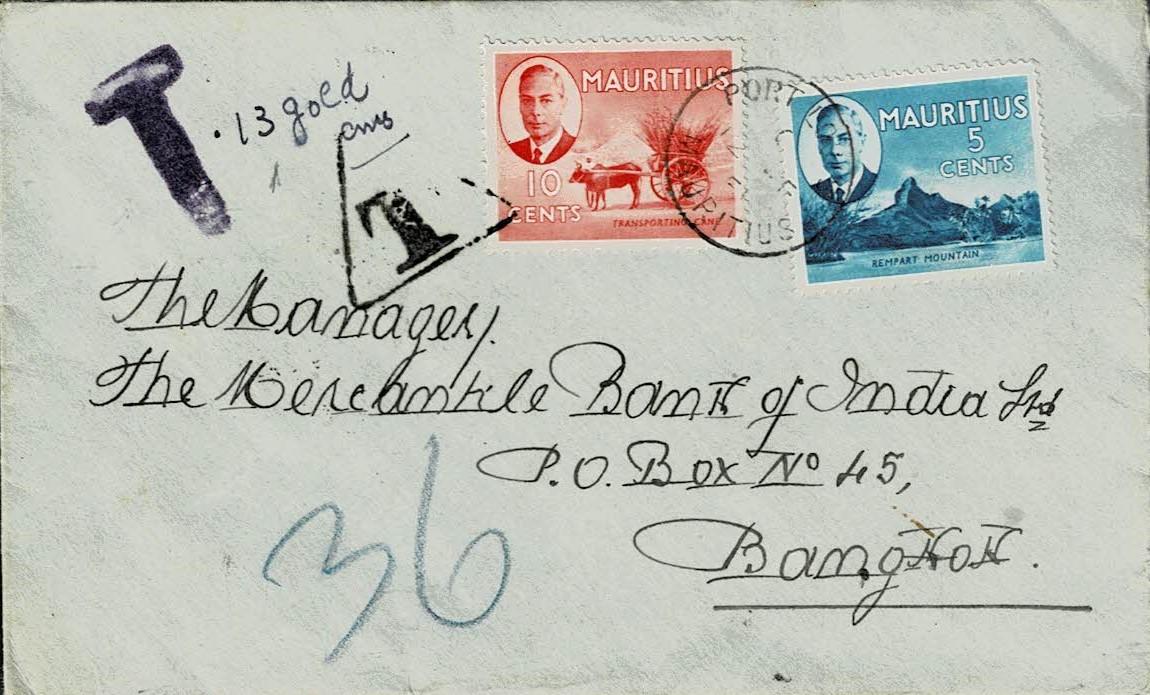 T
.13 gold
cms
T
MAURITIUS
10
CENTS
TRANSPORTING CANE
MAURITIUS
5
CENTS
REMPART MOUNTAIN
PORT
MAURITIUS
The Manager,
The Mercantile Bank of India Ltd
P.O. Box Nº 45,
Bangkok.
36